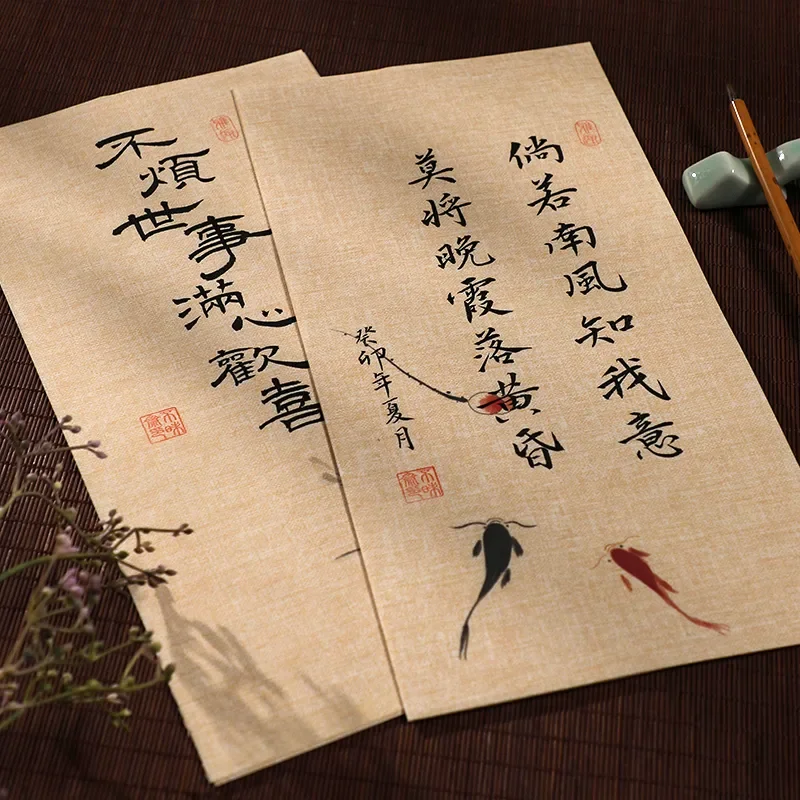 倘若南風知我意
莫將晚霞落黃昏
癸卯年夏月
不煩世事
滿心歡喜